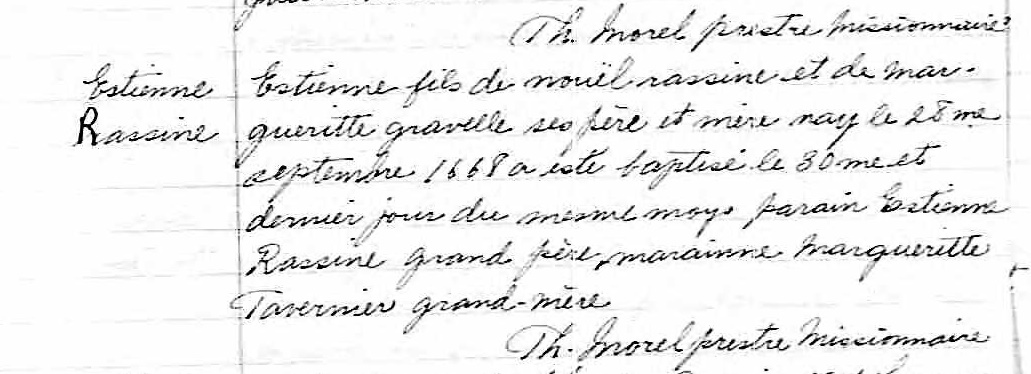 Th. Morel prestre Missionnaire
Estienne
Rassine
Estienne fils de nouël rassine et de mar-
gueritte gravelle ses père et mère nay le 28me
septembre 1668 a esté baptisé le 30me et
dernier jour du mesme moys parain Estienne
Rassine grand père, marainne Margueritte
Tavernier grand-mère
Th. Morel prestre Missionnaire